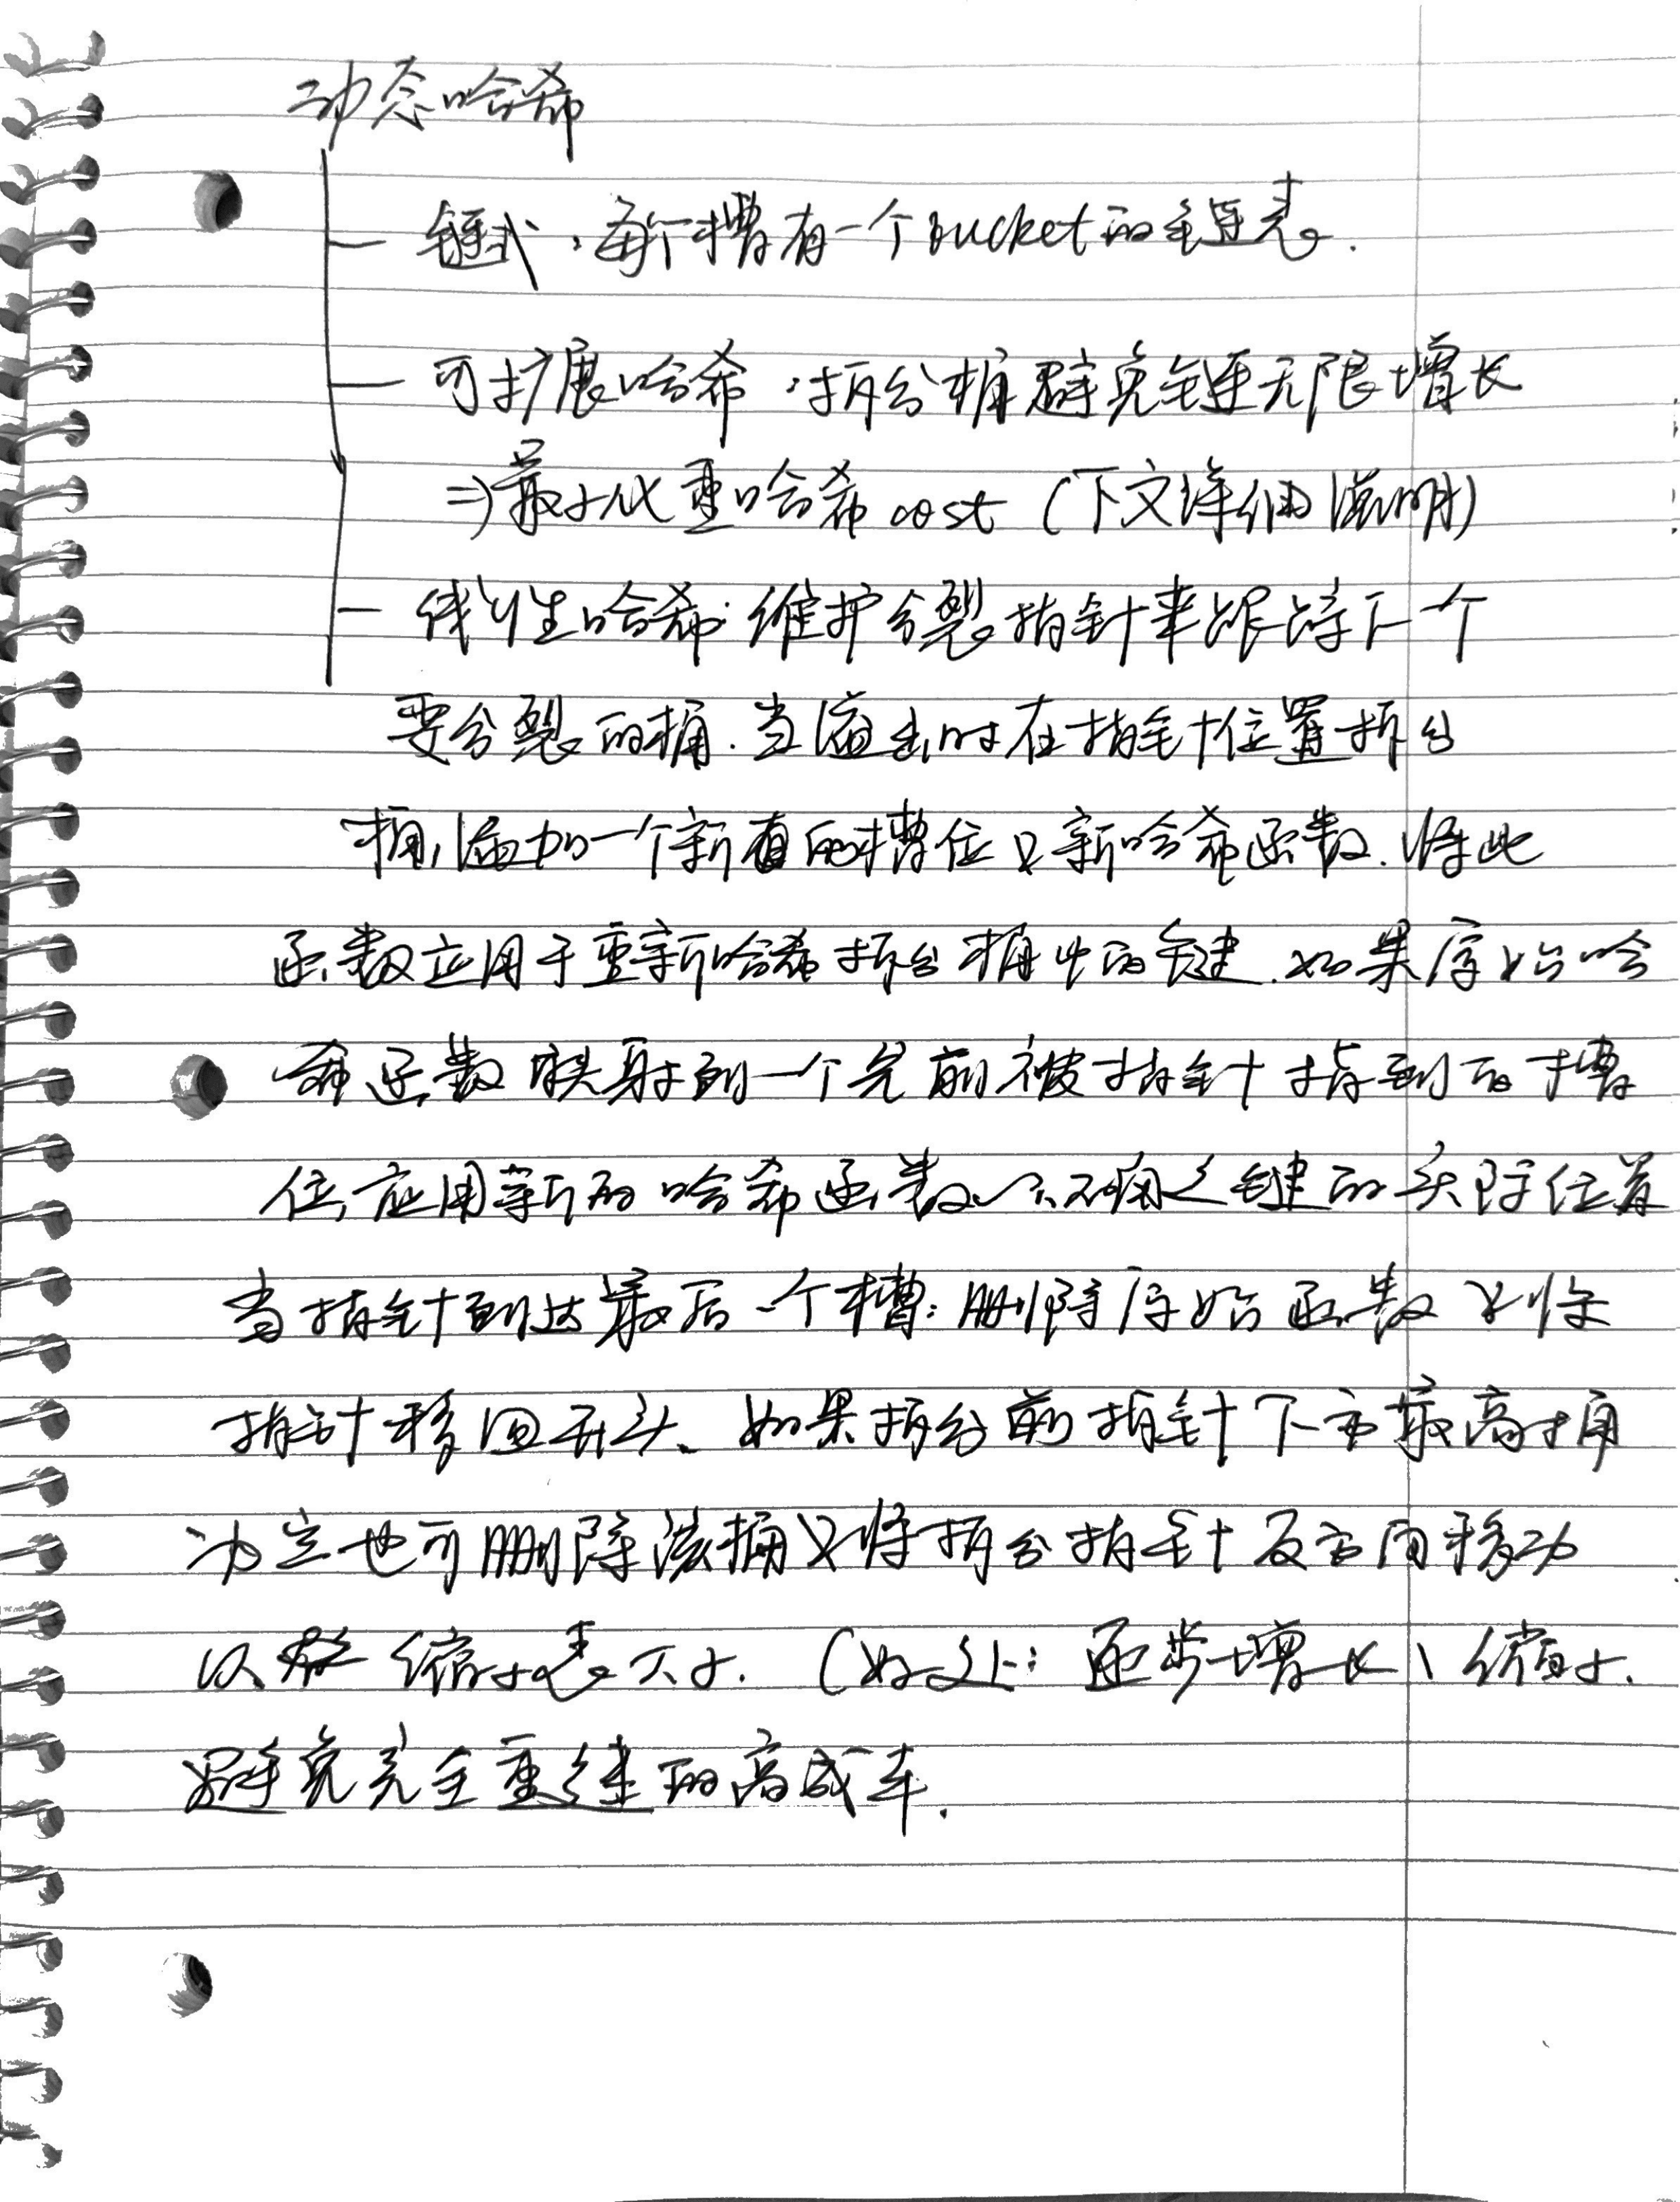 动态哈希
链式：每个槽有一个bucket的链表.
可扩展哈希：拆分桶避免链无限增长
⇒最小化重哈希cost (下文详细说明)
线性哈希：维护分裂指针来跟踪下一个
要分裂的桶.当溢出时在指针位置拆分
桶,添加一个新的槽位及新哈希函数.将此
函数应用于重新哈希拆分桶中的键.如果原始哈
希函数映射到一个先前被指针指到的槽
位,应用新的哈希函数以确定键的实际位置
当指针到达最后一个槽:删除原始函数又将
指针移回开头、如果拆分前指针下方最高桶
为空也可删除该桶又将拆分指针反方向移动
以缩小表大小.(好处:逐步增长、缩小.
避免完全重建的高成本.